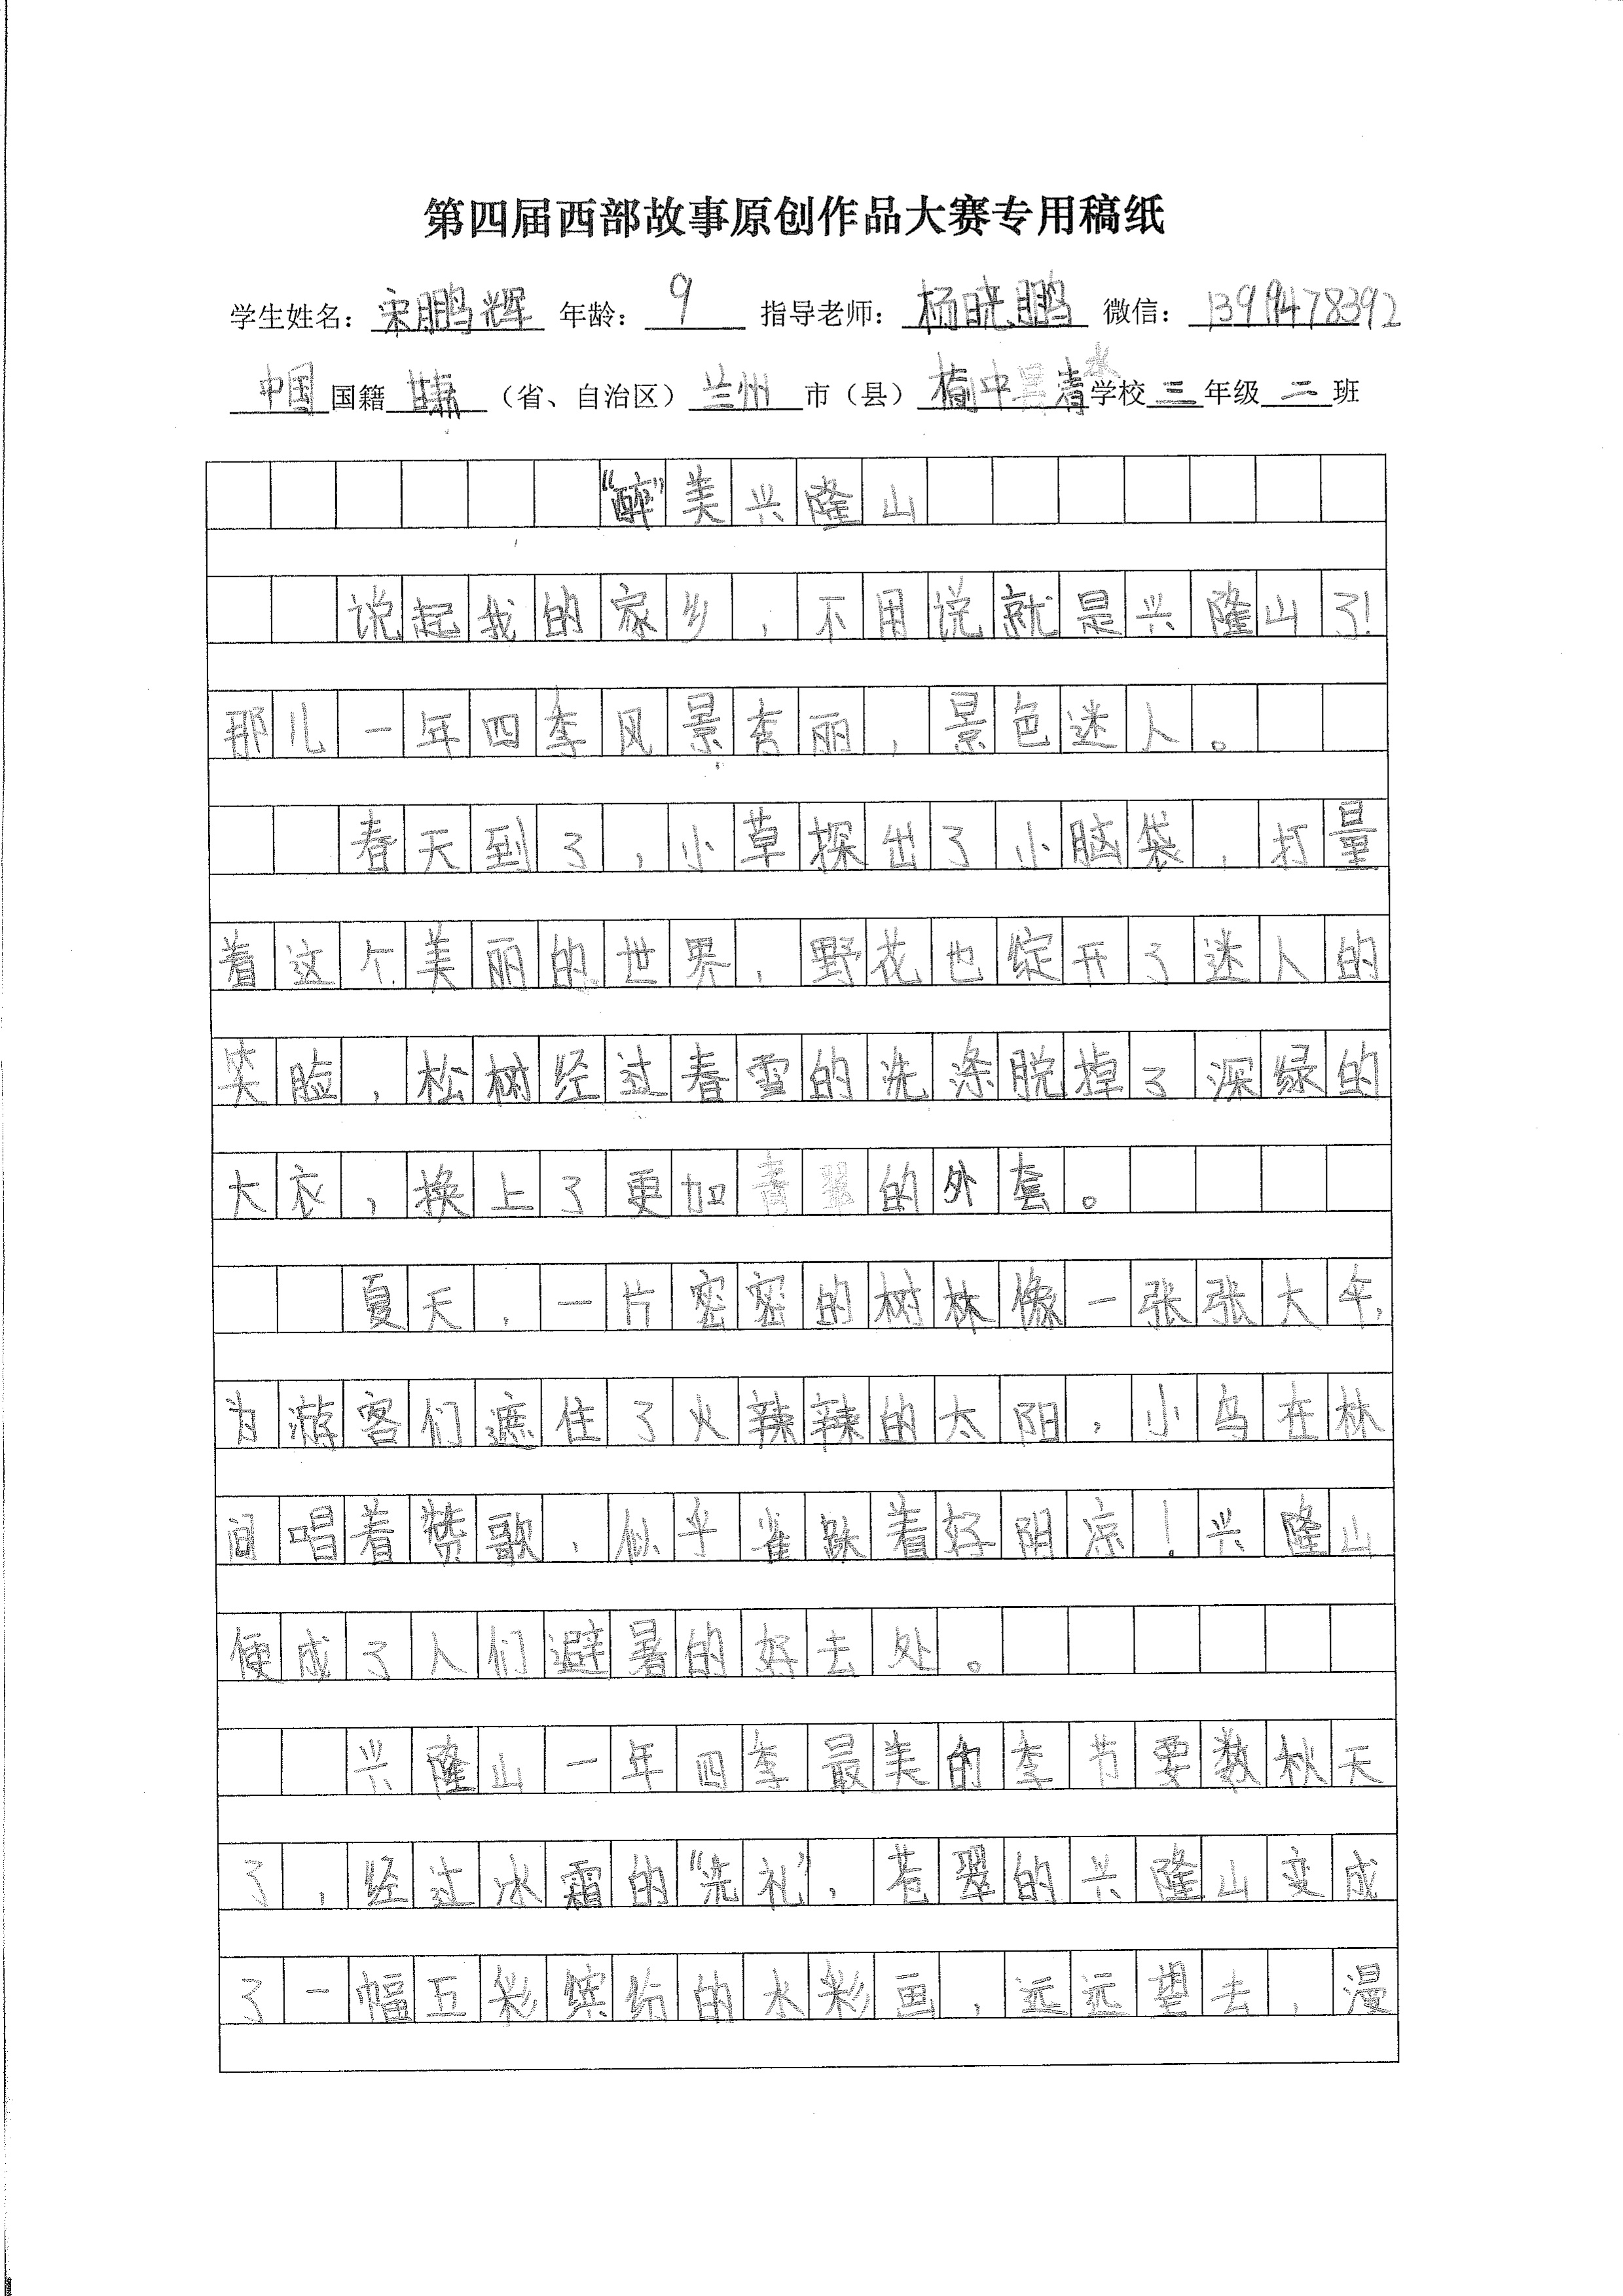 第四届西部故事原创作品大赛专用稿纸
学生姓名：宋鹏辉 年龄：9 指导老师：杨晓鹏 微信：
中国国籍甘肃（省、自治区）兰州市（县）榆中清水学校三年级二班
“醉”美兴隆山
说起我的家乡，不用说就是兴隆山了！
那儿一年四季风景秀丽，景色迷人。
春天到了，小草探出了小脑袋，打量
着这个美丽的世界，野花也绽开了迷人的
笑脸，松树经过春雪的洗涤脱掉了深绿的
大衣，换上了更加青翠的外套。
夏天，一片密密的树林像一张张大伞，
为游客们遮住了火辣辣的太阳，小鸟在林
间唱着赞歌，似乎雀跃着好阴凉！兴隆山
便成了人们避暑的好去处。
兴隆山一年四季最美的季节要数秋天
了，经过冰霜的“洗礼”，苍翠的兴隆山变成
了一幅五彩缤纷的水彩画，远远望去，漫